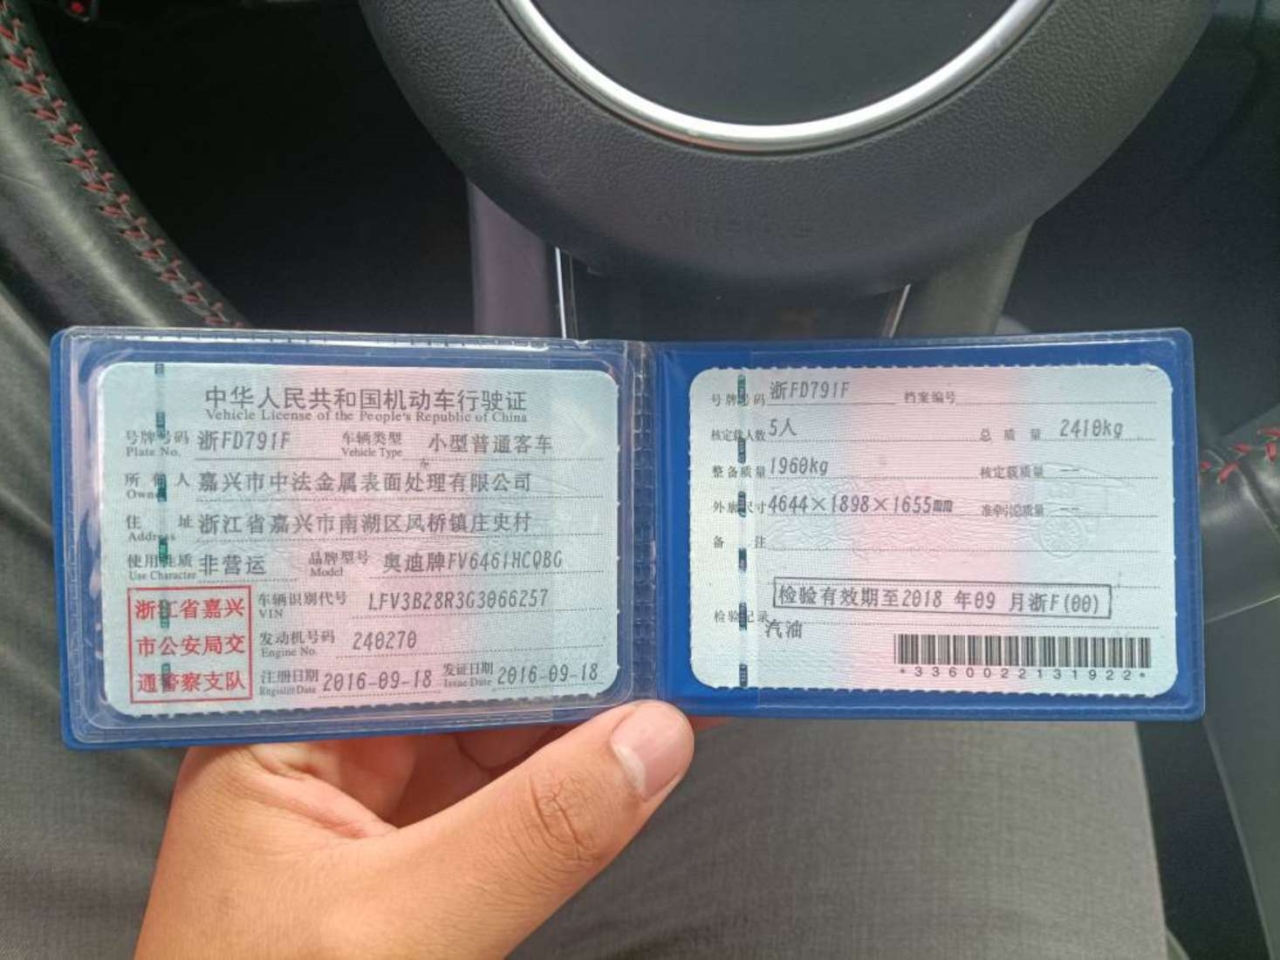 中华人民共和国机动车行驶证
Vehicle License of the People's Republic of China
号牌号码 浙FD791F 车辆类型 小型普通客车
Plate No. Vehicle Type
所有人 嘉兴市中法金属表面处理有限公司
Owner
住址 浙江省嘉兴市南湖区凤桥镇庄史村
Address
使用性质 非营运 品牌型号 奥迪牌FV6461HCQBG
Use Character Model
浙江省嘉兴
市公安局交
通警察支队
车辆识别代号 LFV3B28R3G3066257
VIN
发动机号码 240270
Engine No.
注册日期 2016-09-18 发证日期 2016-09-18
Register Date Issue Date
号牌号码 浙FD791F 档案编号
核定载人数 5人 总质量 2410kg
整备质量 1960kg 核定载质量 --
外廓尺寸 4644×1898×1655mm 准牵引总质量 --
备注
检验有效期至2018 年09 月浙F(00)
检验记录
汽油
*3360022131922*